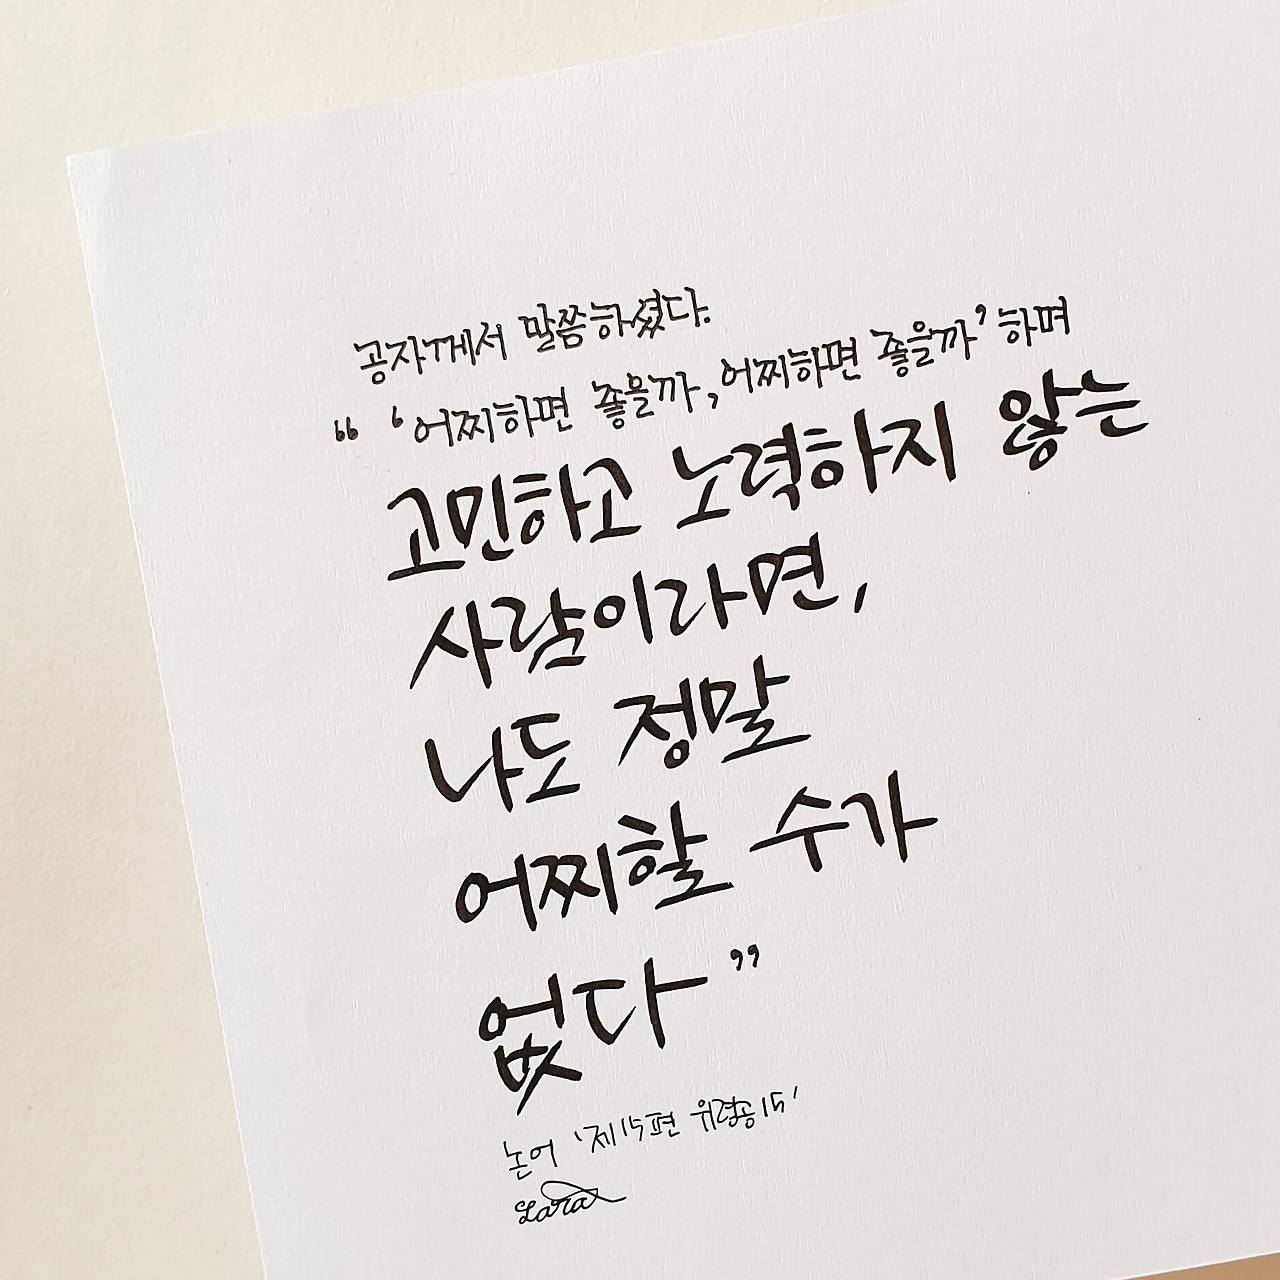 공자께서 말씀하셨다.
“ ‘어찌하면 좋을까, 어찌하면 좋을까’ 하며
고민하고 노력하지 않는
사람이라면,
나도 정말
어찌할 수가
없다”
논어 '제15편 위령공15'
Lara